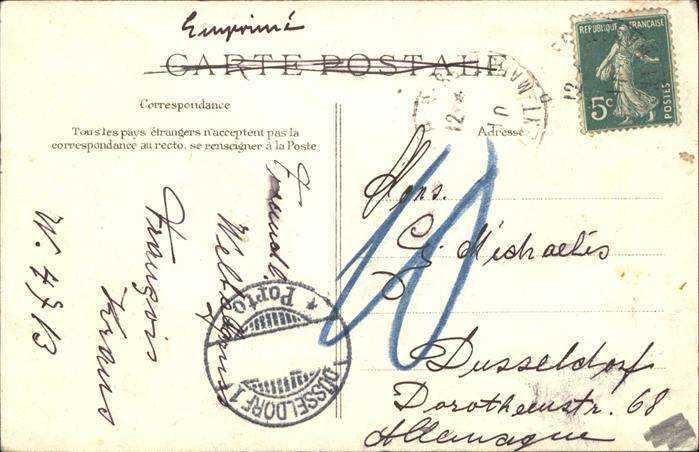 Emprimé
CARTE POSTALE
REPUBLIQUE FRANÇAISE
5c
POSTES
Correspondance
Tous les pays étrangers n'acceptent pas la
correspondance au recto, se renseigner à la Poste
Adresse
10
Freundl.
François
Kraus
W. 4913
Porto
DÜSSELDORF 1
Mons.
Michaelis
Dusseldorf
Dorotheenstr. 68
Allemagne